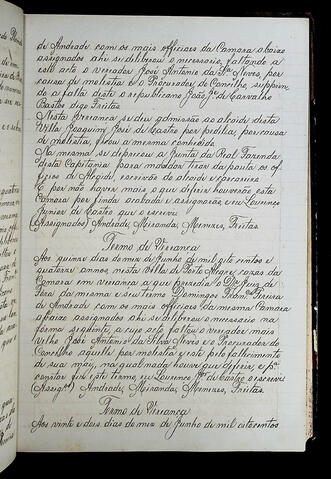 de Andrade com os mais officiaes da Camara abaixo
assignados ahi se deliberou o necessario, faltando a
este acto o vereador José Antonio da Sª Neves, por
causa de molestia e o Procurador do Concelho, supprin
do a falta deste o republicano João Jº de Carvalho
Bastos digo Freitas
Nesta vereança se deu admissão ao alcaide desta
Villa Joaquim José de Castro por pedil-a, por causa
de molestia, ficou a mesma conhecida
Na mesma se deprecou a Junta da Real Fazenda
desta Capitania para mandar tirar da pauta os of
ficios de Alcaide, escrivão do alcaide e carcereiro
E por não haver mais o que deferir houverão esta
Camara por finda acabada e assignarão e eu Lourenço
Junior de Castro que o escrevi
(Assignados) Andrade, Miranda, Menezes, Freitas.
Termo de Vereança
Aos quinze dias do mez de Junho de mil oito centos e
quatorze annos, nesta Villa de Porto Alegre, casas da
Camara em vereança a que presidio o Dr. Juiz de
Fora da mesma e seu Termo Domingos Franc. Pereira
de Andrade com os mais officiaes da mesma Camara
abaixo assignados ahi se deliberou o necessario na
forma seguinte, a cujo acto faltou o vereador mais
velho José Antonio da Silva Neves e o Procurador do
Concelho aquelle por molestia e este pelo fallecimento
de sua mãi, na qual nada houve que deferir e pª
constar fiz este termo, eu Lourenço Jº de Castro o escrevi
(Assigºˢ) Andrade, Miranda, Menezes, Freitas.
Termo de Vereança
Aos vinte e dois dias do mez de Junho de mil oitocentos